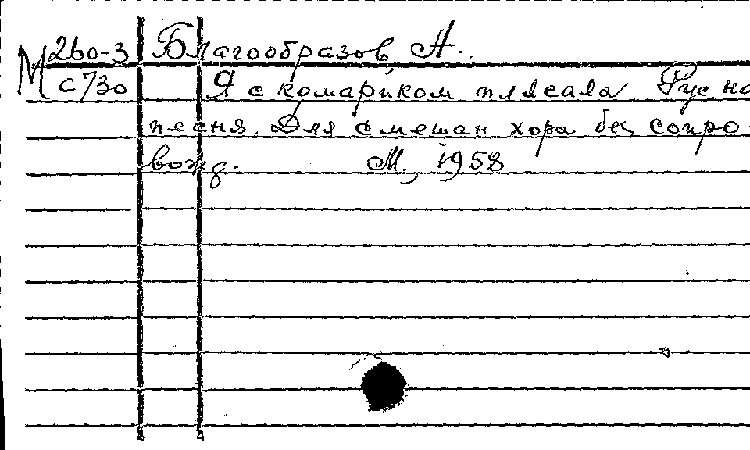 М 260-3 Благообразов, А.
с730 Я с комариком плясала Рус на
песня. Для смешан хора без сопро-
вожд. М., 1958